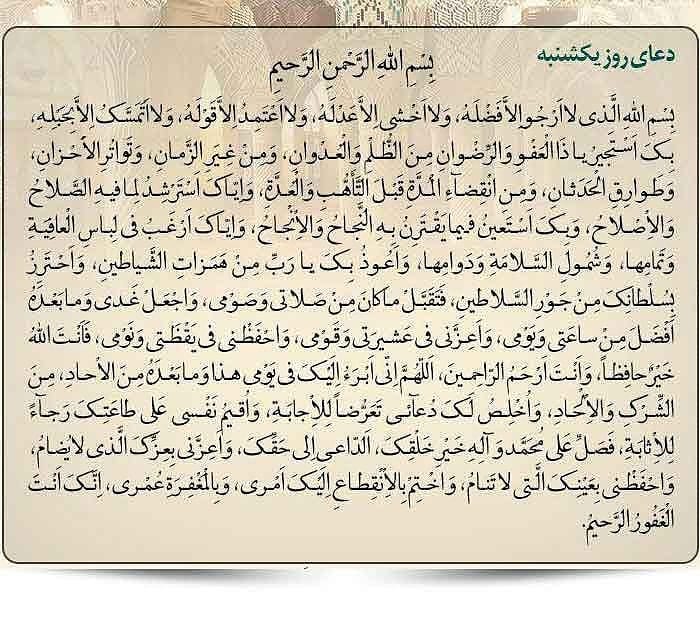 دعای روز یکشنبه
بِسْمِ اللهِ الرَّحْمنِ الرَّحیمِ
بِسْمِ اللهِ الَّذی لا اَرْجُو اِلاَّ فَضْلَهُ، وَلا اَخْشی اِلاَّ عَدْلَهُ، وَلا اَعْتَمِدُ اِلاَّ قَوْلَهُ، وَلا اَتَمَسَّکُ اِلاَّ بِحَبْلِهِ،
بِکَ اَسْتَجیرُ یا ذَا الْعَفْوِ وَالرِّضْوانِ مِنَ الظُّلْمِ وَالْعُدْوانِ، وَمِنْ غِیَرِ الزَّمانِ، وَتَواتُرِ الاَْحْزانِ،
وَطَوارِقِ الْحَدَثانِ، وَمِنِ انْقِضآءِ الْمُدَّةِ قَبْلَ التَّاَهُّبِ وَالْعُدَّةِ، وَاِیّاکَ اَسْتَرْشِدُ لِما فیهِ الصَّلاحُ
وَالاِْصْلاحُ، وَبِکَ اَسْتَعینُ فیما یَقْتَرِنُ بِهِ النَّجاحُ وَالاِْنْجاحُ، وَاِیّاکَ اَرْغَبُ فی لِباسِ الْعافِیَةِ
وَتَمامِها، وَشُمُولِ السَّلامَةِ وَدَوامِها، وَاَعُوذُ بِکَ یا رَبِّ مِنْ هَمَزاتِ الشَّیاطینِ، وَاَحْتَرِزُ
بِسُلْطانِکَ مِنْ جَوْرِ السَّلاطینِ، فَتَقَبَّلْ ما کانَ مِنْ صَلاتی وَصَوْمی، وَاجْعَلْ غَدی وَما بَعْدَهُ
اَفْضَلَ مِنْ ساعَتی وَیَوْمی، وَاَعِزَّنی فی عَشیرَتی وَقَوْمی، وَاحْفَظْنی فی یَقْظَتی وَنَوْمی، فَاَنْتَ اللهُ
خَیْرٌ حافِظاً، وَاَنْتَ اَرْحَمُ الرّاحِمینَ، اَللّهُمَّ اِنّی اَبْرَءُ اِلَیْکَ فی یَوْمی هذا وَما بَعْدَهُ مِنَ الاْحادِ، مِنَ
الشِّرْکِ وَالاِْلْحادِ، وَاُخْلِصُ لَکَ دُعآئی تَعَرُّضاً لِلاِْجابَةِ، وَاُقیمُ نَفْسی عَلی طاعَتِکَ رَجآءً
لِلاِْثابَةِ، فَصَلِّ عَلی مُحَمَّد وَآلِهِ خَیْرِ خَلْقِکَ، اَلدّاعی اِلی حَقِّکَ، وَاَعِزَّنی بِعِزِّکَ الَّذی لا یُضامُ،
وَاحْفَظْنی بِعَیْنِکَ الَّتی لا تَنامُ، وَاخْتِمْ بِالاِْنْقِطاعِ اِلَیْکَ اَمْری، وَبِالْمَغْفِرَةِ عُمْری، اِنَّکَ اَنْتَ
الْغَفُورُ الرَّحیمُ.